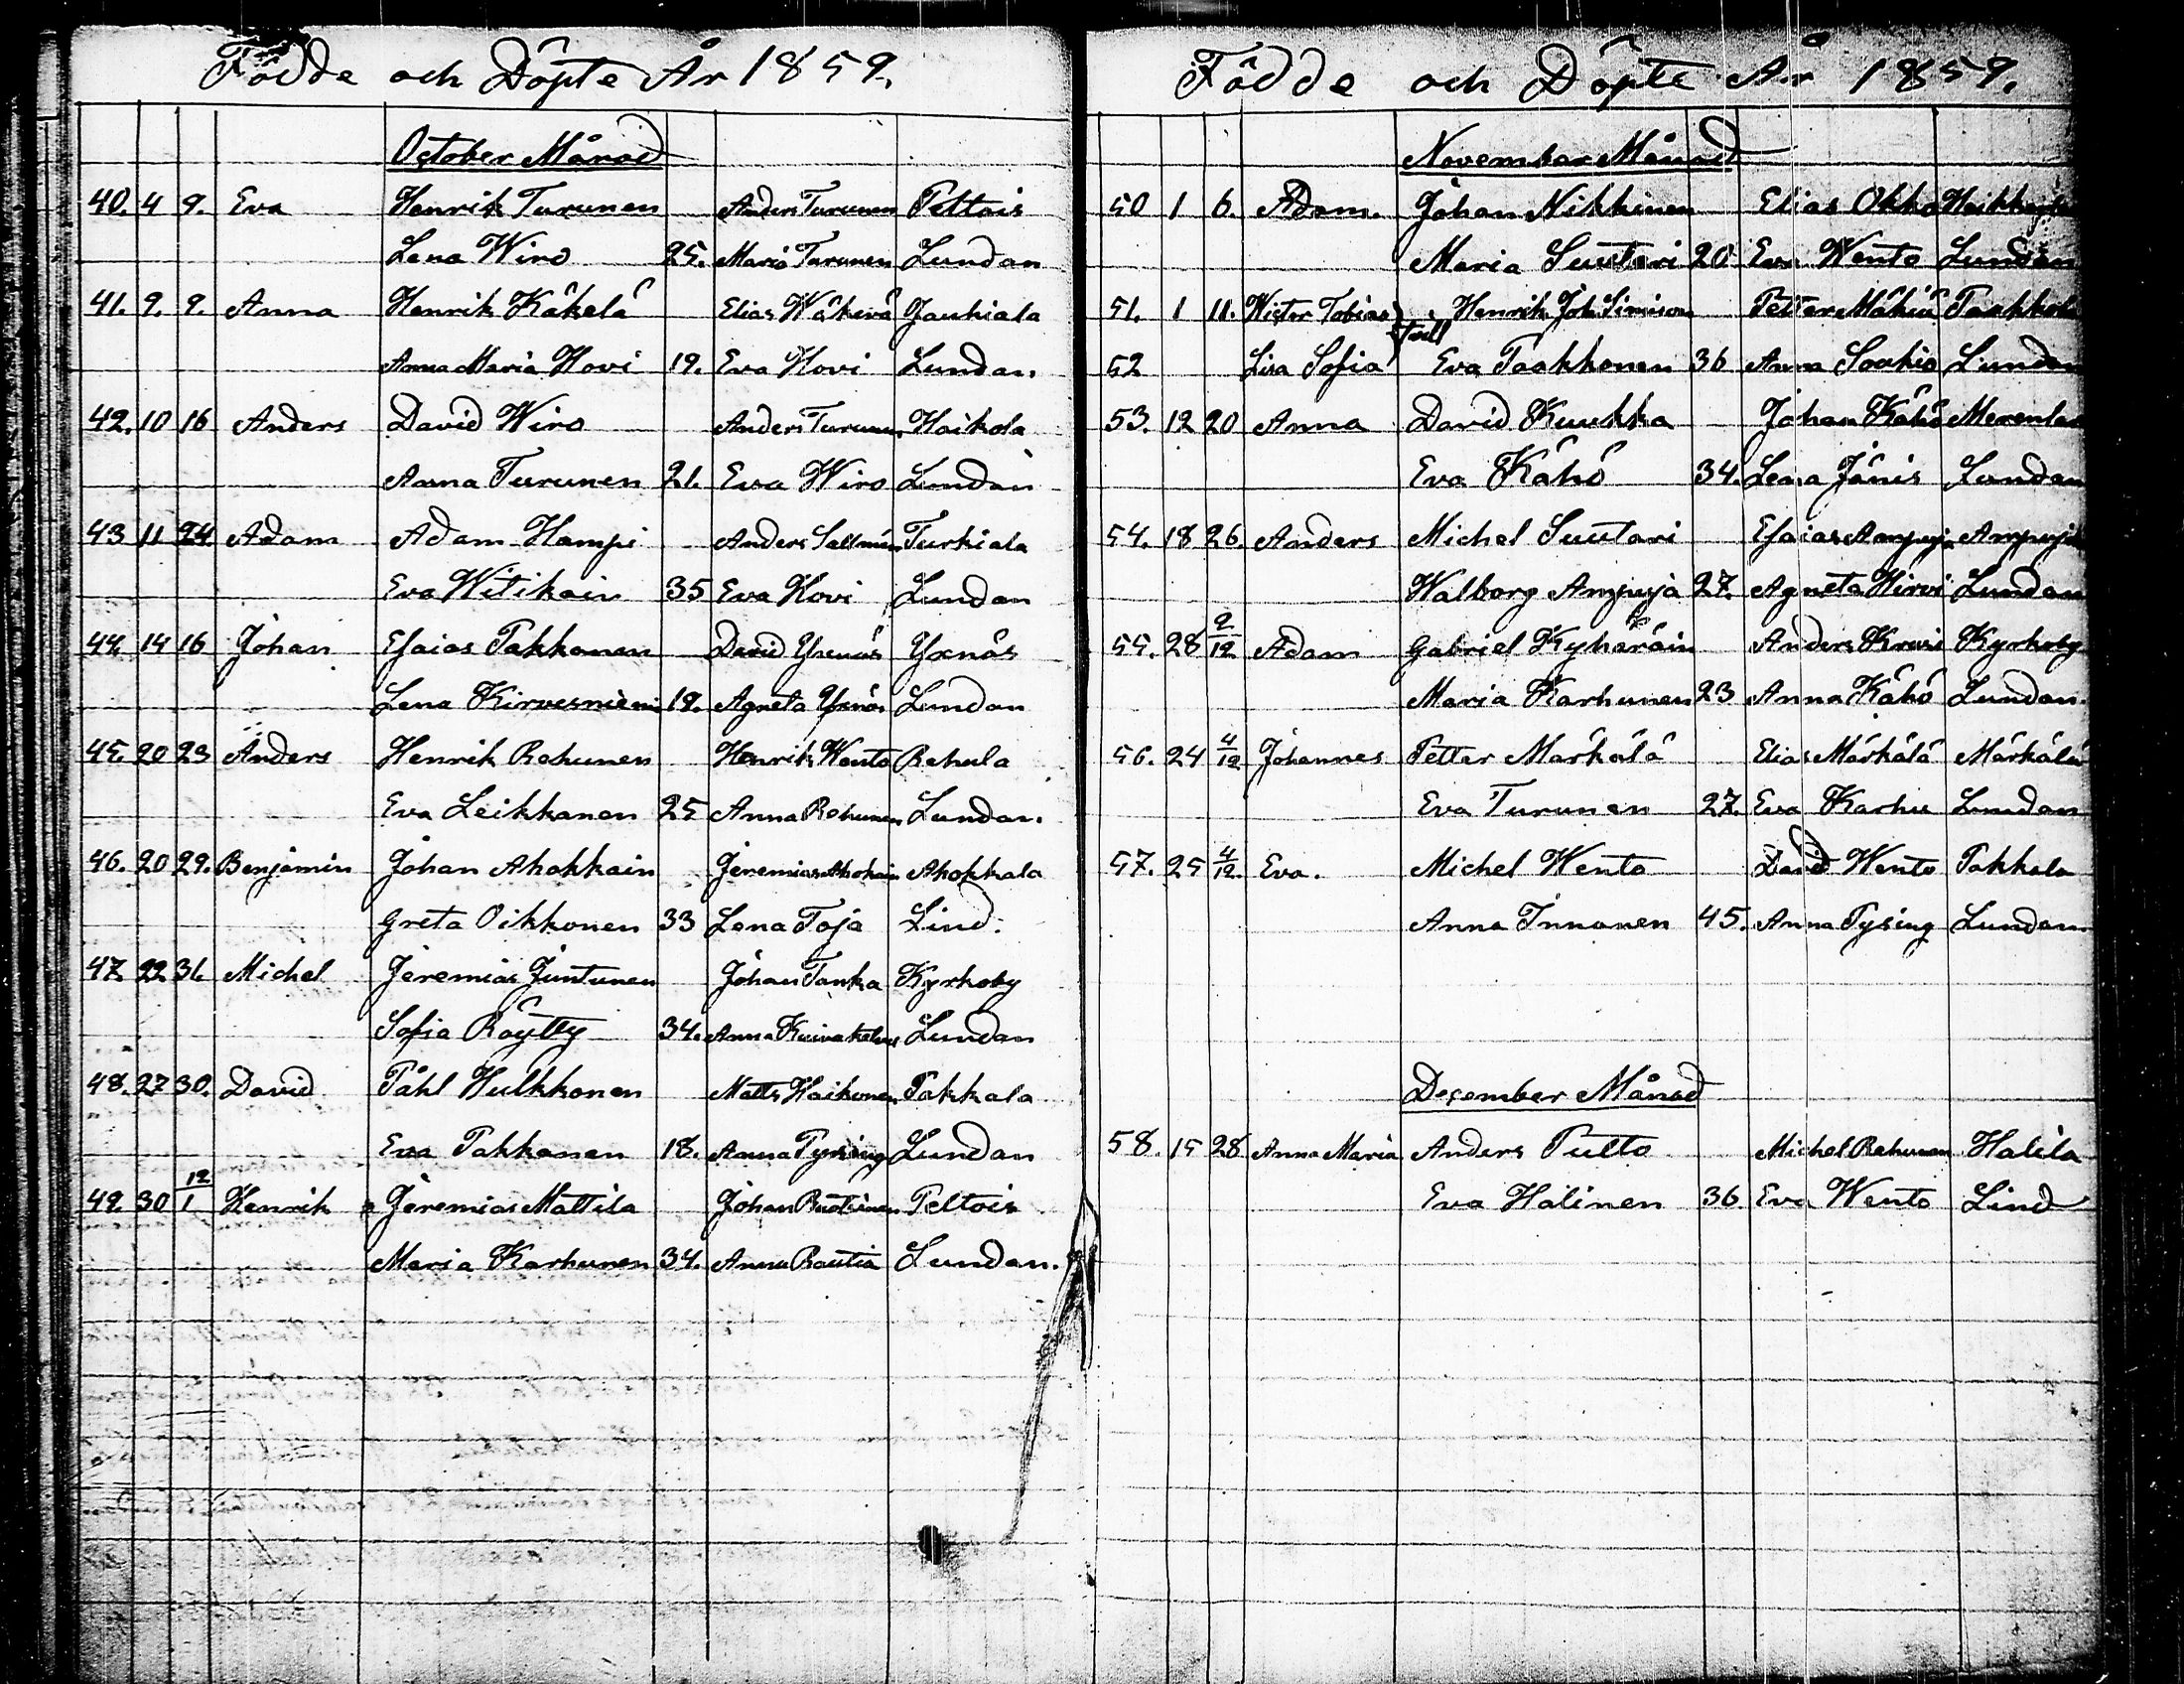 Födde och Döpte År 1859.
October Månad
40. 4 9. Eva Henrik Turunen Anders Turunen Peltois
Lena Wiro 25. Maria Turunen Lundan
41. 9. 9. Anna Henrik Käkelä Elias Wäkevä Jauhiala
Anna Maria Hovi 19. Eva Hovi Lundan.
42. 10 16 Anders David Wiro Anders Turunen Haikola
Anna Turunen 21. Eva Wiro Lundan
43 11 24 Adam Adam Hampi Anders Turkiala
Eva Witikain 35 Eva Hovi Lundan
44. 14 16 Johan Esaias Pakkanen David Yxnäs Yxnäs
Lena Kirvesniemi 19. Agneta Yxnäs Lundan
45. 20 23 Anders Henrik Rehunen Henrik Wento Rehula
Eva Leikkanen 25 Anna Rehunen Lundan.
46. 20 29. Benjamin Johan Ahokkain Jeremias Ahokain Ahokkala
Greta Oikkonen 33 Lena Toja Lind.
47. 22 31. Michel Jeremias Juntunen Johan Tanka Kyrkoby
Sofia Röytty 34. Anna Lundan
48. 27 30. David Påhl Hulkkonen Matts Haikonen Pakkala
Eva Pakkanen 18. Anna Pysing Lundan
49. 30 12/1 Henrik Jeremias Mattila Johan Peltois
Maria Karhunen 34. Anna Rautia Lundan.
Födde och Döpte År 1859.
November Månad
50 1 6. Adam. Johan Nikkinen Elias Okko
Maria Suutari 20 Eva Wento Lundan
51. 1 11. Wictor Tobias Henrik Joh. Simison Petter Mäkiä Paakkola
52 Lisa Sofia tvill Eva Paakkonen 36 Anna Lundan
53. 12 20 Anna David Kuukka Johan Kähö
Eva Kähö 34. Lena Jänis Lundan
54. 18 26. Anders Michel Suutari Esaias Ampuja
Walborg Ampuja 27. Agneta Hirvi Lundan
55. 28 2/12 Adam Gabriel Kyheräin Anders Kyrkoby
Maria Karhunen 23 Anna Kähö Lundan.
56. 24 4/12 Johannes Petter Märkälä Elias Märkälä Märkälä
Eva Turunen 27. Eva Karhu Lundan
57. 25 4/12. Eva. Michel Wento David Wento Pakkala
Anna Innanen 45. Anna Pysing Lundan
December Månad
58. 15 28 Anna Maria Anders Pulto Michel Rehunen Halila
Eva Halinen 36. Eva Wento Lind